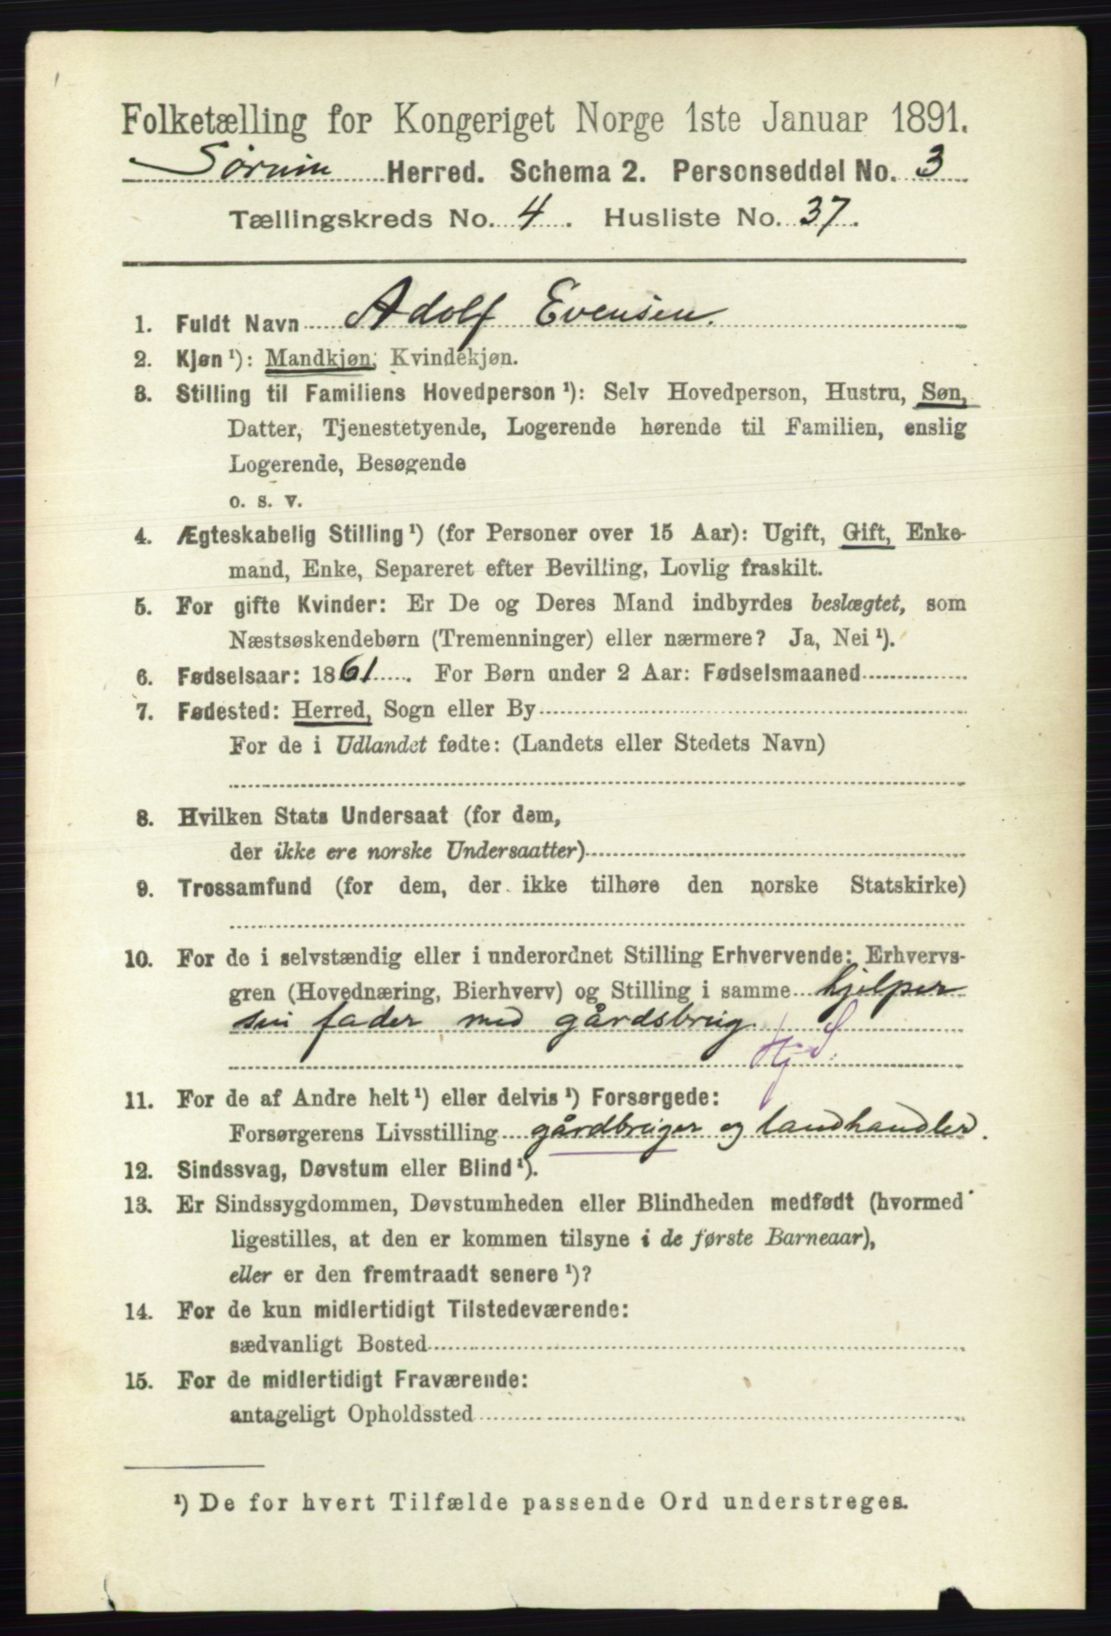 Folketælling for Kongeriget Norge 1ste Januar 1891.
Sørum Herred. Schema 2. Personseddel No. 3
Tællingskreds No. 4. Husliste No. 37.
1. Fuldt Navn Adolf Evensen.
2. Kjøn¹): Mandkjøn, Kvindekjøn.
3. Stilling til Familiens Hovedperson¹): Selv Hovedperson, Hustru, Søn,
Datter, Tjenestetyende, Logerende hørende til Familien, enslig
Logerende, Besøgende
o. s. v.
4. Ægteskabelig Stilling¹) (for Personer over 15 Aar): Ugift, Gift, Enke-
mand, Enke, Separeret efter Bevilling, Lovlig fraskilt.
5. For gifte Kvinder: Er De og Deres Mand indbyrdes beslægtet, som
Næstsøskendebørn (Tremenninger) eller nærmere? Ja, Nei¹).
6. Fødselsaar: 1861. For Børn under 2 Aar: Fødselsmaaned
7. Fødested: Herred, Sogn eller By
For de i Udlandet fødte: (Landets eller Stedets Navn)
8. Hvilken Stats Undersaat (for dem,
der ikke ere norske Undersaatter)
9. Trossamfund (for dem, der ikke tilhøre den norske Statskirke)
10. For de i selvstændig eller i underordnet Stilling Erhvervende: Erhvervs-
gren (Hovednæring, Bierhverv) og Stilling i samme hjelper
sin fader med gårdsbrug.
Hj S.
11. For de af Andre helt¹) eller delvis¹) Forsørgede:
Forsørgerens Livsstilling gårdbruger og landhandler.
12. Sindssvag, Døvstum eller Blind¹).
13. Er Sindssygdommen, Døvstumheden eller Blindheden medfødt (hvormed
ligestilles, at den er kommen tilsyne i de første Barneaar),
eller er den fremtraadt senere¹)?
14. For de kun midlertidigt Tilstedeværende:
sædvanligt Bosted
15. For de midlertidigt Fraværende:
antageligt Opholdssted
¹) De for hvert Tilfælde passende Ord understreges.